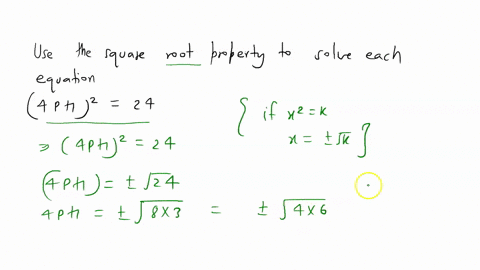 Use the square root property to solve each
equation
(4p+1)² = 24
{ if x² = k
x = ±√k }
⇒ (4p+1)² = 24
(4p+1) = ± √24
4p+1 = ± √8×3 = ± √4×6